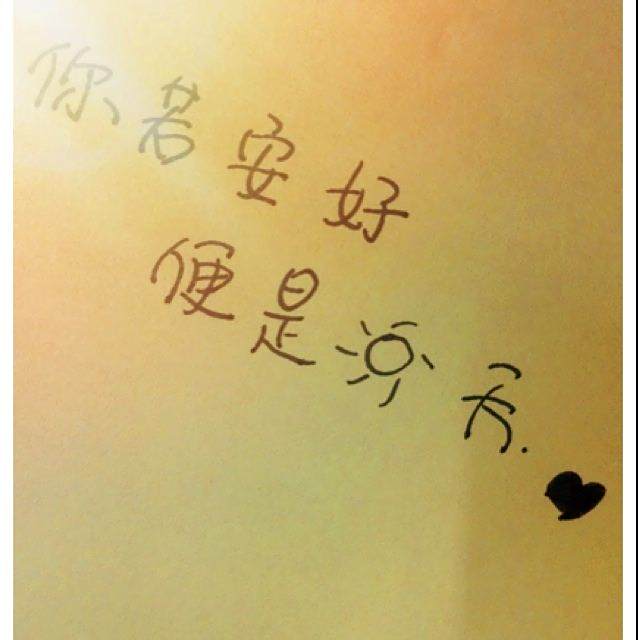 你若安好
便是☀天.